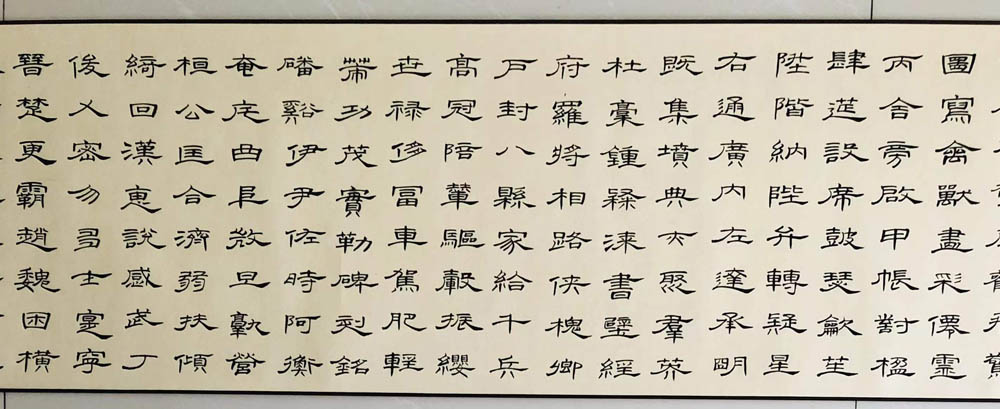 圖寫禽獸畫彩僊靈
丙舍旁啟甲帳對楹
肆筵設席鼓瑟龡笙
陞階納陛弁轉疑星
右通廣內左達承明
既集墳典亦聚羣英
杜稾鍾隸漆書壁經
府羅將相路俠槐卿
戶封八縣家給千兵
高冠陪輦驅轂振纓
世祿侈富車駕肥輕
策功茂實勒碑刻銘
磻谿伊尹佐時阿衡
奄宅曲阜微旦孰營
桓公匡合濟弱扶傾
綺回漢惠說感武丁
俊乂密勿多士寔寧
晉楚更霸趙魏困橫